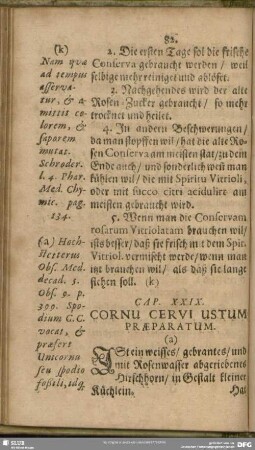 82.
(k)
Nam quæ
ad tempus
asserva-
tur, & a-
mittit co-
lorem, &
saporem
mutat.
Schroder.
l. 4. Phar.
Med. Chy-
mic. pag.
134.
(a) Hoch-
stetterus
Obs. Med.
decad. 5.
Obs. 9. p.
399. Spo-
dium C. C.
vocat, &
præfert
Unicornu
seu spodio
fossili, idq;
2. Die ersten Tage sol die frische
Conserva gebraucht werden / weil
selbige mehr reiniget und ablöset.
3. Nachgehends wird der alte
Rosen-Zucker gebraucht / so mehr
trocknet und heilet.
4. In andern Beschwerungen /
da man stopffen wil / hat die alte Ro-
sen Conserva am meisten stat / zu dem
Ende auch / und sonderlich weñ man
kühlen wil / die mit Spiritu Vitrioli,
oder mit succo citri acidulirt am
meisten gebraucht wird.
5. Wenn man die Conservam
rosarum Vitriolatam brauchen wil /
ists besser / daß sie frisch mit dem Spir.
Vitriol. vermischt werde / wenn man
sie brauchen wil / als daß sie lange
stehen soll. (k)
CAP. XXIX.
CORNU CERVI USTUM
PRÆPARATUM.
(a)
IStein weisses / gebrantes / und
mit Rosenwasser abgeriebenes
Hirschhorn / in Gestalt kleiner
Küchlein.
Hat